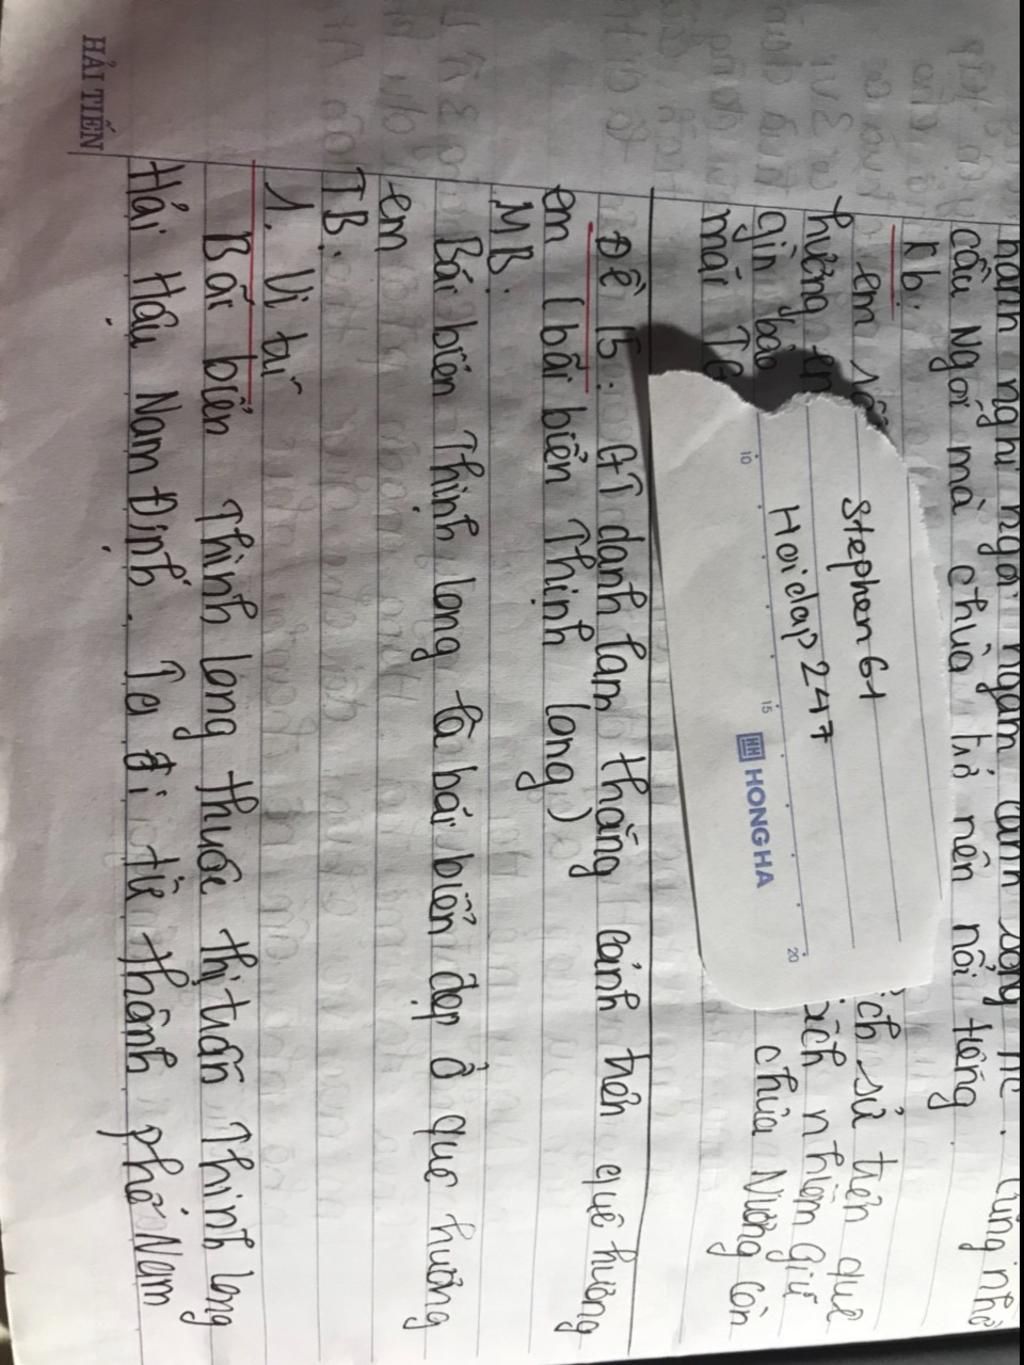 ngắm cảnh sông cũng nhờ
cầu Ngói mà chùa trở nên nổi tiếng.
Kb:
em ịch sử trên quê
hương ách nhiệm giữ
gìn bảo chùa Nương còn
mãi
Stephen61
Hoidap247
10 15 20
HONG HA
Đề 15: GT danh lam thắng cảnh trên quê hương
em (bãi biển Thịnh Long)
MB:
Bãi biển Thịnh Long là bãi biển đẹp ở quê hương
em
TB:
1. Vị trí
Bãi biển Thịnh Long thuộc thị trấn Thịnh Long
Hải Hậu Nam Định. Ta đi từ thành phố Nam
HẢI TIẾN